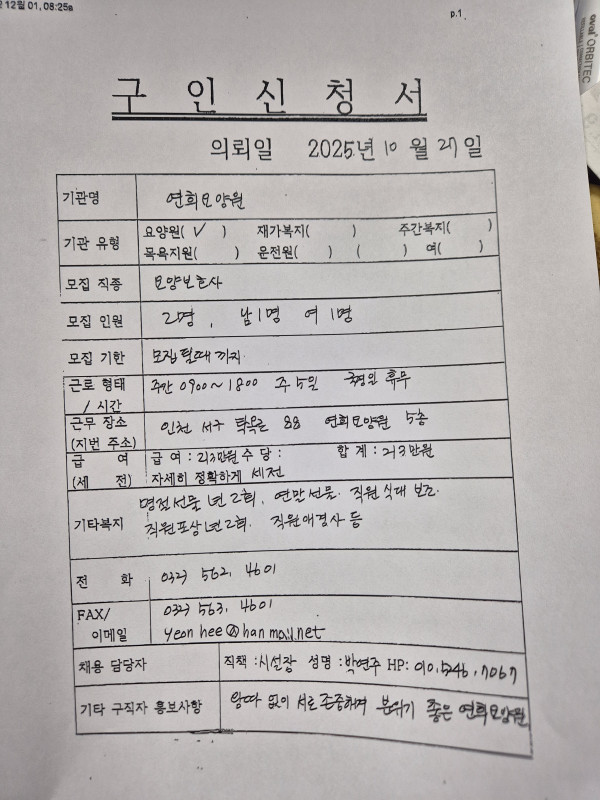 12월 01, 08:25a
p.1
oval ORBITEC
구 인 신 청 서
의뢰일 2025년 10 월 27 일
기관명 연희요양원
기관 유형 요양원( ✓ ) 재가복지( ) 주간복지( )
목욕지원( ) 운전원( ) ( ) 여( )
모집 직종 요양보호사
모집 인원 2명, 남1명 여1명
모집 기한 모집 될때 까지
근로 형태 / 시간 주간 0900~1800 주5일 국경일 휴무
근무 장소 (지번 주소) 인천 서구 탁옥로 88 연희요양원 5층
급 여 (세 전) 급 여 : 213만원 수 당 : 합 계 : 213만원
자세히 정확하게 세전
기타복지 명절선물 년2회, 연말선물. 직원식대 보조.
직원포상 년2회. 직원애경사 등
전 화 032) 562. 4601
FAX/ 032) 563. 4601
이메일 yeonhee@hanmail.net
채용 담당자 직책 :시설장 성명 :박연주 HP: 010.5246.7067
기타 구직자 홍보사항 왕따 없이 서로존중하며 분위기 좋은 연희요양원